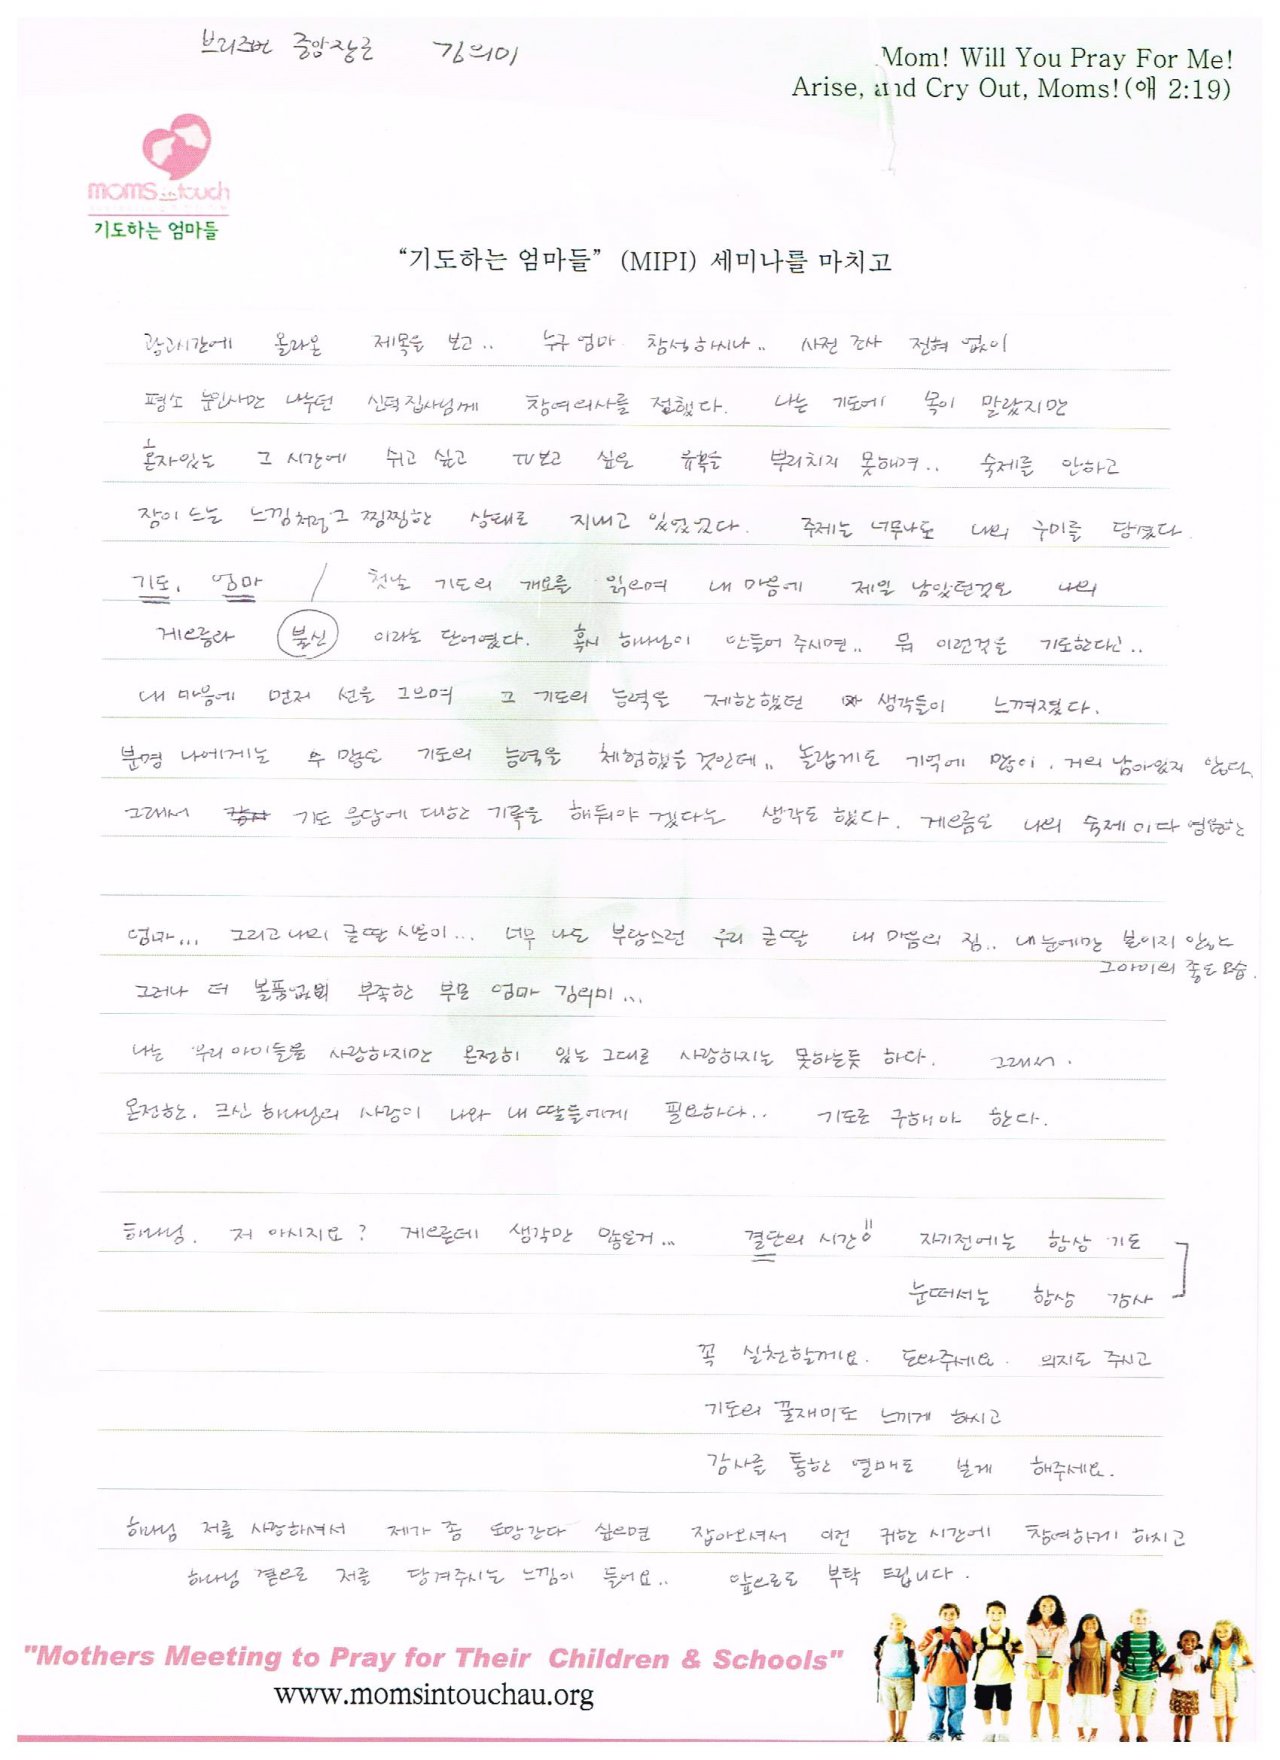 브리즈번 중앙장로 김의미
Mom! Will You Pray For Me!
Arise, and Cry Out, Moms!(애 2:19)
moms in touch
기도하는 엄마들
“기도하는 엄마들” (MIPI) 세미나를 마치고
광고시간에 올라온 제목을 보고.. 누구 엄마 참석하시나.. 사전 조사 전혀 없이
평소 눈인사만 나누던 신덕집사님께 참여의사를 전했다. 나는 기도에 목이 말랐지만
혼자있는 그 시간에 쉬고 싶고 TV보고 싶은 유혹을 뿌리치지 못해여.. 숙제를 안하고
잠이 드는 느낌처럼 그 찜찜한 상태로 지내고 있었었다. 주제는 너무나도 나의 구미를 당겼다.
기도, 엄마 / 첫날 기도의 개요를 읽으며 내 마음에 제일 남았던것은 나의
게으름과 불신 이라는 단어였다. 혹시 하나님이 안들어 주시면.. 뭐 이런것을 기도한다고..
내 마음에 먼저 선을 그으며 그 기도의 능력을 제한했던 생각들이 느껴졌다.
분명 나에게는 수 많은 기도의 능력을 체험했을 것인데.. 놀랍게도 기억에 많이. 거의 남아있지 않다.
그래서 기도 응답에 대한 기록을 해둬야 겠다는 생각도 했다. 게으름은 나의 숙제이다
엄마... 그리고 나의 큰딸 시은이... 너무 나도 부담스런 우리 큰딸 내 마음의 짐.. 내 눈에만 보이지 않는
그아이의 좋은 모습.
그러나 더 볼품없고 부족한 부모 엄마 김의미...
나는 우리 아이들을 사랑하지만 온전히 있는 그대로 사랑하지는 못하는듯 하다. 그래서.
온전한. 크신 하나님의 사랑이 나와 내 딸들에게 필요하다.. 기도로 구해야 한다.
하나님. 저 아시지요? 게으른데 생각만 많은거... 결단의 시간!! 자기전에는 항상 기도
눈떠서는 항상 감사
꼭 실천할께요. 도와주세요. 의지도 주시고
기도의 꿀재미도 느끼게 하시고
감사를 통한 열매도 보게 해주세요.
하나님 저를 사랑하셔서 제가 좀 도망간다 싶으면 잡아오셔서 이런 귀한 시간에 참여하게 하시고
하나님 곁으로 저를 당겨주시는 느낌이 들어요.. 앞으로도 부탁 드립니다.
"Mothers Meeting to Pray for Their Children & Schools"
www.momsintouchau.org